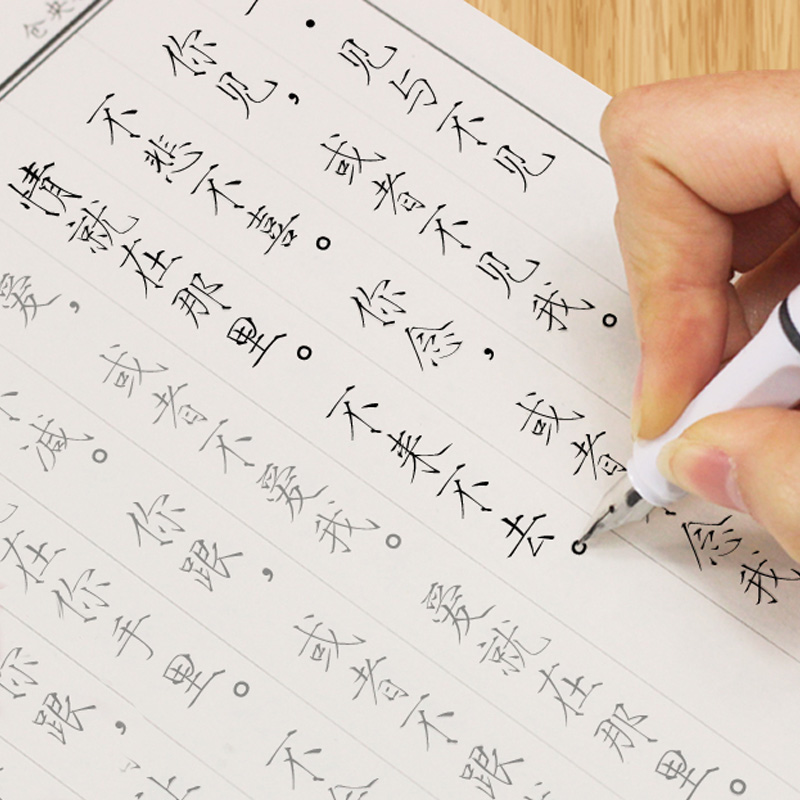 见与不见
你见，或者不见我。
不悲不喜。你念，或者念我
情就在那里。不来不去。
爱，或者不爱我。爱就在那里。
减。你跟，或者不跟
在你手里。不
你跟，